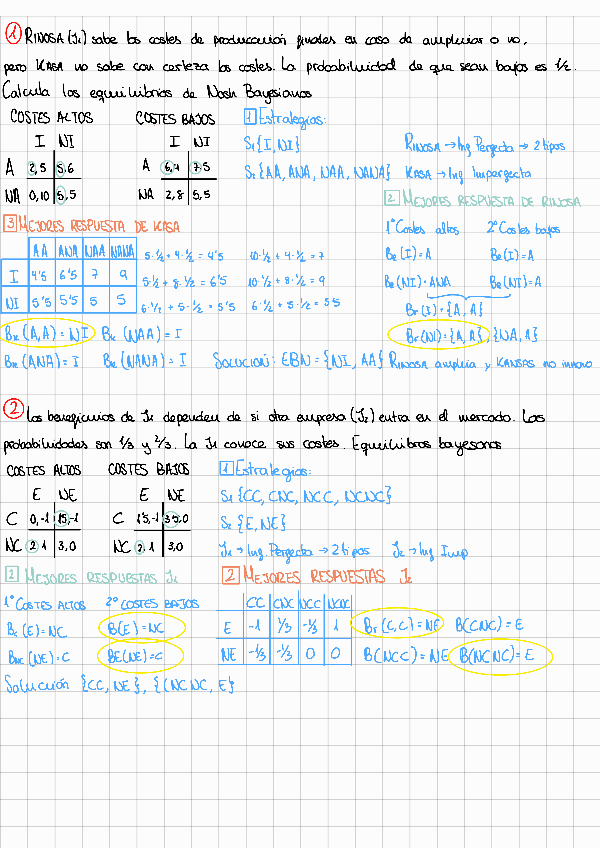 ① RINOSA (J1) sabe los costes de producción finales en caso de ampliar o no,
pero KASA no sabe con certeza los costes. La probabilidad de que sean bajos es 1/2.
Calcula los equilibrios de Nash Bayesianos
COSTES ALTOS COSTES BAJOS 1 Estrategias:
I NI I NI S1 {I, NI} RINOSA → Ing Perfecta → 2 tipos
A 2,5 5,6 A 6,4 7,5 S2 {AA, ANA, NAA, NANA} KASA → Ing Imperfecta
NA 0,10 5,5 NA 2,8 5,5 2 MEJORES RESPUESTA DE RINOSA
3 MEJORES RESPUESTA DE KASA 1º Costes altos 2º Costes bajos
AA ANA NAA NANA 5·1/2 + 4·1/2 = 4'5 10·1/2 + 4·1/2 = 7 BR (I) = A BR (I) = A
I 4'5 6'5 7 9 5·1/2 + 8·1/2 = 6'5 10·1/2 + 8·1/2 = 9 BR (NI) = ANA BR (NI) = A
NI 5'5 5'5 5 5 6·1/2 + 5·1/2 = 5'5 6·1/2 + 5·1/2 = 5'5 Br (I) = {A, A}
BK (A,A) = NI BK (NAA) = I Br (NI) = {A, A}, {NA, A}
BK (ANA) = I BK (NANA) = I Solución: EBN = {NI, AA} RINOSA amplia y KANSAS no innova
② Los beneficios de J1 dependen de si otra empresa (J2) entra en el mercado. Las
probabilidades son 1/3 y 2/3. La J1 conoce sus costes. Equilibros bayesanos
COSTES ALTOS COSTES BAJOS 1 Estrategias:
E NE E NE S1 {CC, CNC, NCC, NCNC}
C 0,-1 15,-1 C 15,-1 35,0 S2 {E, NE}
NC 2,1 3,0 NC 2,1 3,0 J1 → Ing. Perfecta → 2 tipos J2 → Ing Imp
2 MEJORES RESPUESTAS J1 2 MEJORES RESPUESTAS J2
1º COSTES ALTOS 2º COSTES BAJOS CC CNC NCC NCNC
BC (E) = NC B(E) = NC E -1 1/3 -1/3 1 Br (C,C) = NE B(CNC) = E
BNC (NE) = C BE(NE) = C NE -1/3 -1/3 0 0 B(NCC) = NE B(NCNC) = E
Solución {CC, NE}, {(NCNC, E}